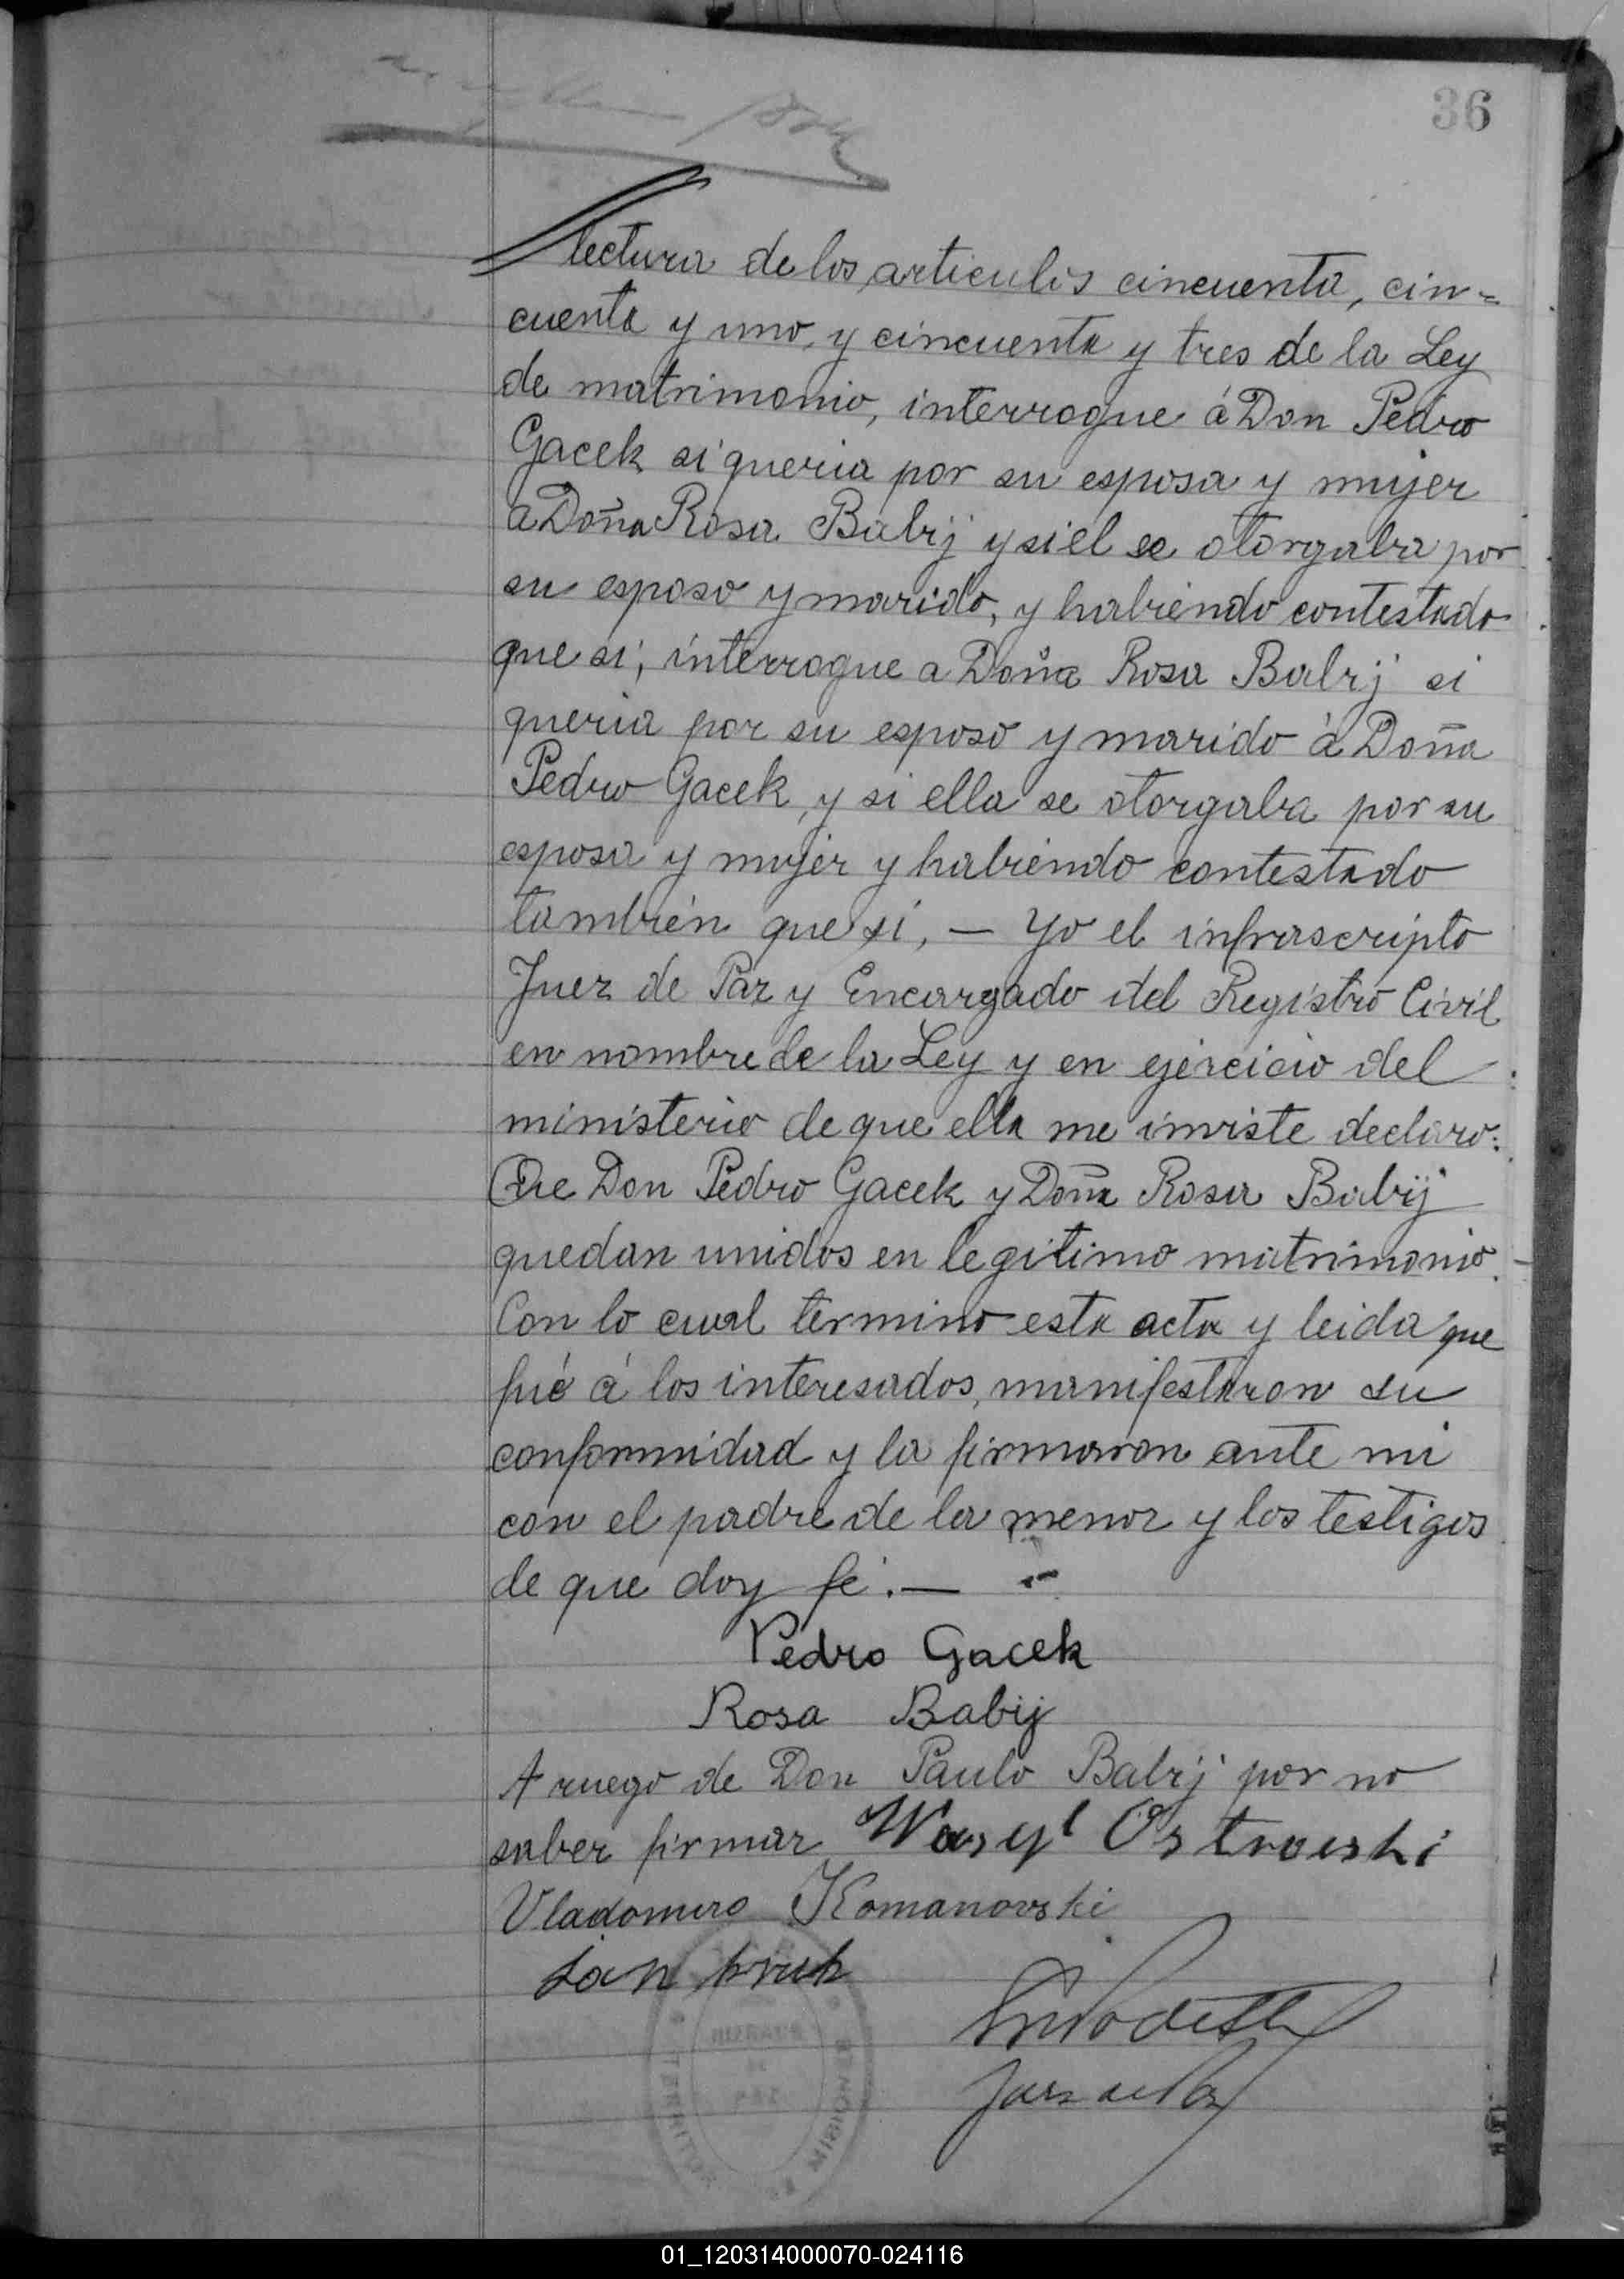 36
lectura de los articulos cincuenta, cin=
cuenta y uno, y cincuenta y tres de la Ley
de matrimonio, interrogue á Don Pedro
Gacek si queria por su esposa y mujer
a Doña Rosa Babij y si el se otorgaba por
su esposo y marido, y habiendo contestado
que si; interrogue a Doña Rosa Babij si
queria por su esposo y marido á Doña
Pedro Gacek, y si ella se otorgaba por su
esposa y mujer y habiendo contestado
tambien que si, — Yo el infrascripto
Juez de Paz y Encargado del Registro Civil
en nombre de la Ley y en ejercicio del
ministerio de que ella me inviste declaro:
Que Don Pedro Gacek y Doña Rosa Babij
quedan unidos en legitimo matrimonio.
Con lo cual termino esta acta y leida que
fué á los interesados, manifestaron su
conformidad y la firmaron ante mi
con el padre de la menor y los testigos
de que doy fé. —
Pedro Gacek
Rosa Babij
A ruego de Don Paulo Babij por no
saber firmar Wasyl Ostrowski
Vladomiro Komanovski
Jan
Juez de Paz
01_120314000070-024116